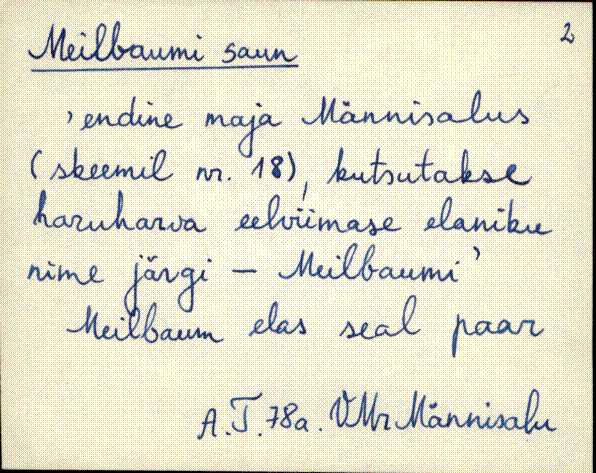 Meilbaumi saun 2
'endine maja Männisalus
(skeemil nr. 18), kutsutakse
haruharva eelviimase elaniku
nime järgi – Meilbaumi'
Meilbaum elas seal paar
A.T.78a. VMr Männisalu